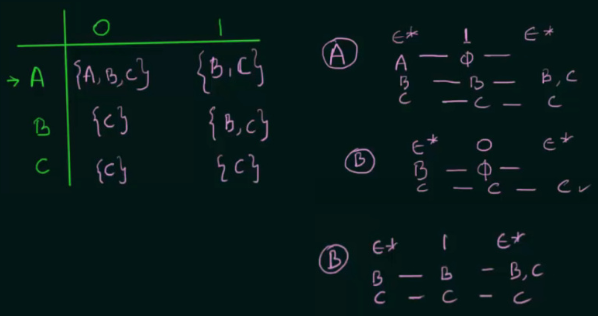 0 1
→ A {A, B, C} {B, C}
B {C} {B, C}
C {C} {C}
A ϵ* 1 ϵ*
A — Φ —
B — B — B, C
C — C — C
B ϵ* 0 ϵ*
B — Φ —
C — C — C ✓
B ϵ* 1 ϵ*
B — B — B, C
C — C — C